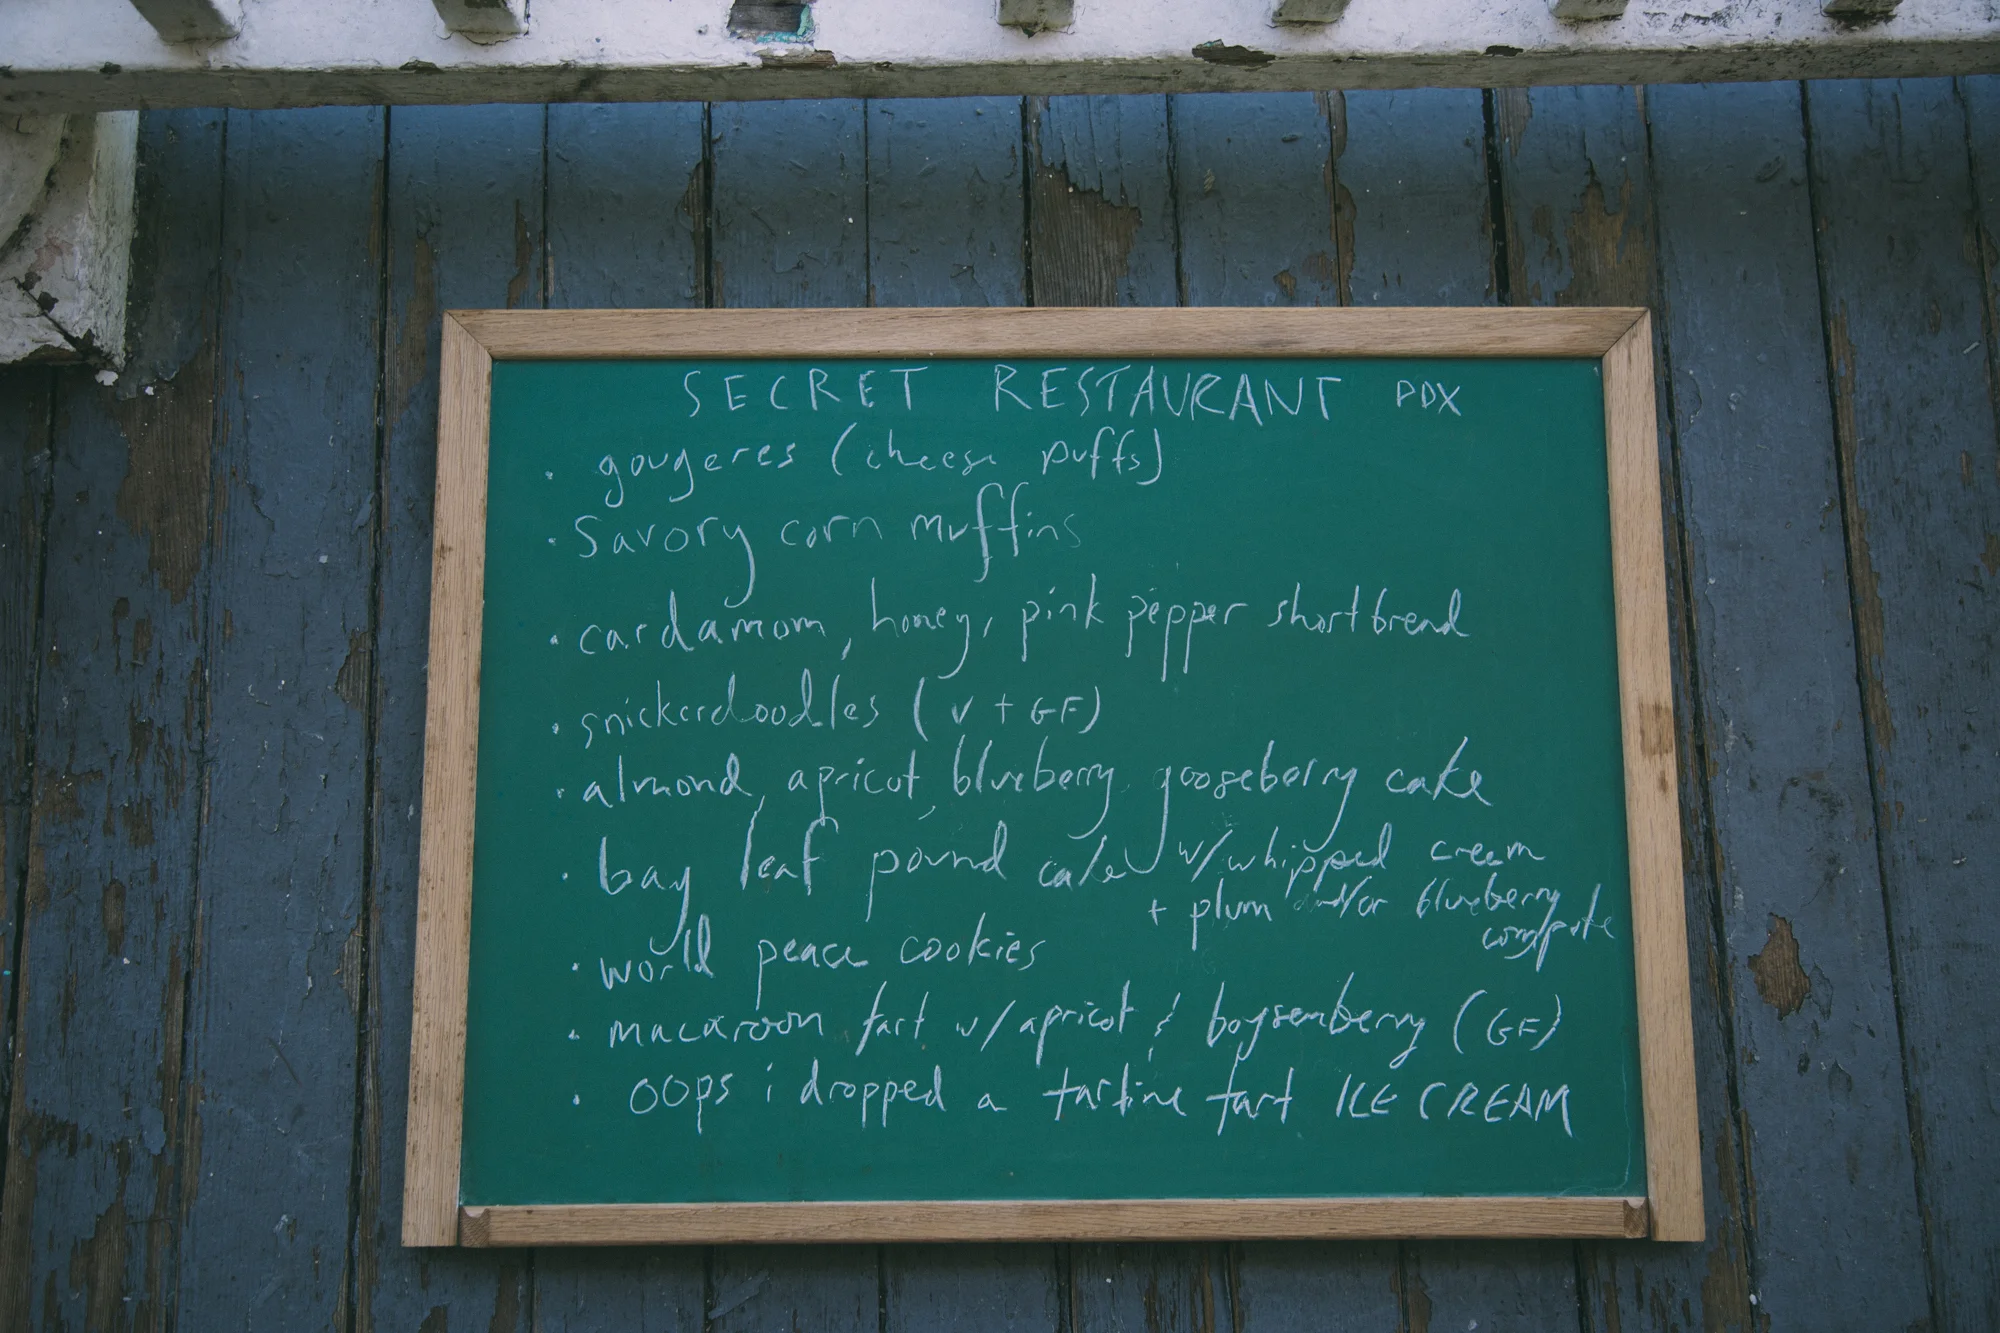 SECRET RESTAURANT PDX
· gougeres (cheese puffs)
· Savory corn muffins
· cardamom, honey, pink pepper shortbread
· snickerdoodles (V + GF)
· almond, apricot, blueberry, gooseberry cake
· bay leaf pound cake w/ whipped cream
+ plum and/or blueberry
compote
· world peace cookies
· macaroon tart w/ apricot & boysenberry (GF)
· OOps i dropped a tartine tart ICE CREAM